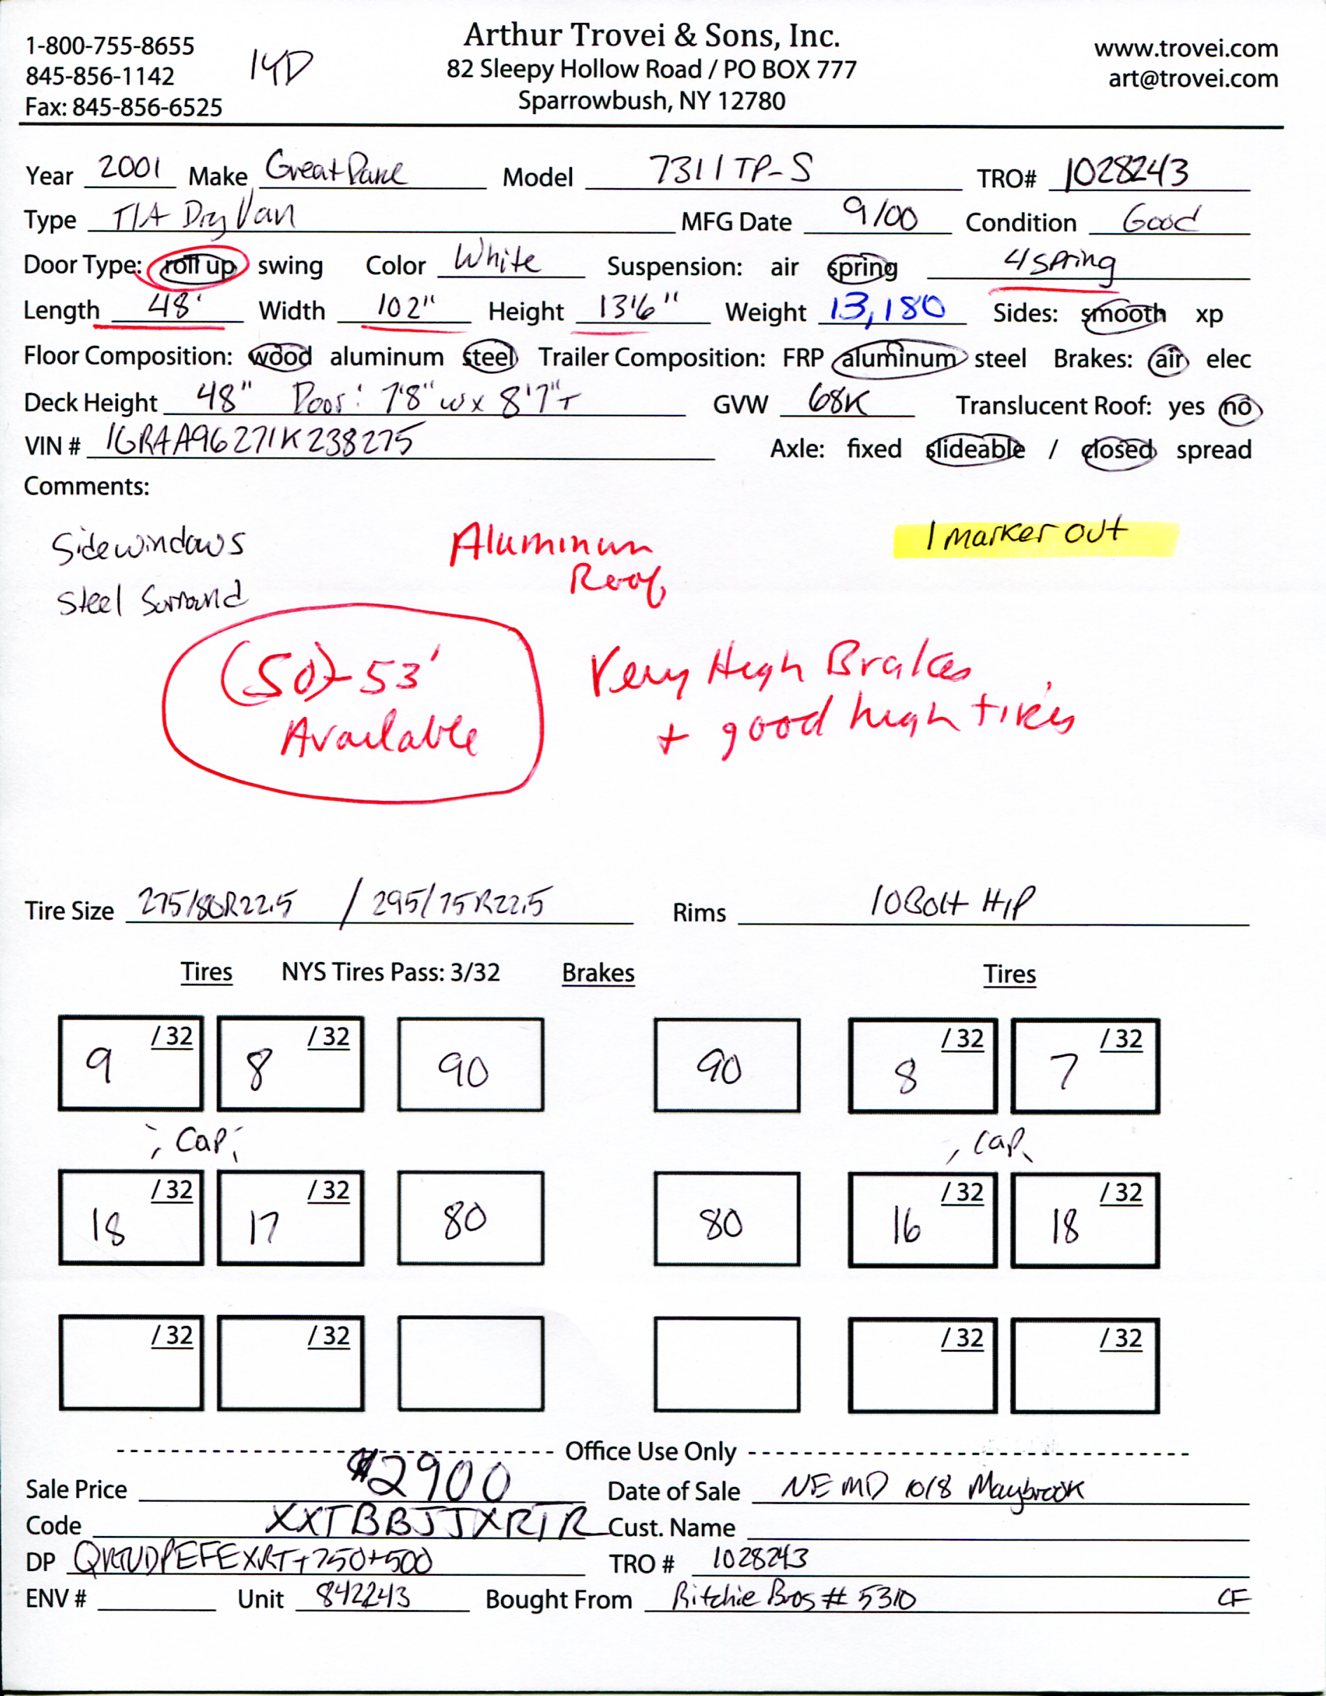 1-800-755-8655
845-856-1142
Fax: 845-856-6525
14D
Arthur Trovei & Sons, Inc.
82 Sleepy Hollow Road / PO BOX 777
Sparrowbush, NY 12780
www.trovei.com
art@trovei.com
Year 2001 Make Great Dane Model 7311TP-S TRO# 1028243
Type T/A Dry Van MFG Date 9/00 Condition Good
Door Type: roll up swing Color White Suspension: air spring 4 spring
Length 48' Width 102" Height 13'6" Weight 13,180 Sides: smooth xp
Floor Composition: wood aluminum steel Trailer Composition: FRP aluminum steel Brakes: air elec
Deck Height 48" Door: 7'8" w x 8'7" T GVW 68K Translucent Roof: yes no
VIN # 1GRAA96271K238275 Axle: fixed slideable / closed spread
Comments:
Side windows Aluminum 1 marker out
Steel Surround Roof
(50)-53' Very High Brakes
Available + good high tires
Tire Size 275/80R22.5 / 295/75R22.5 Rims 10 Bolt H/P
Tires NYS Tires Pass: 3/32 Brakes Tires
9 /32 8 /32 90 90 8 /32 7 /32
Cap Cap
18 /32 17 /32 80 80 16 /32 18 /32
/32 /32 /32 /32
Office Use Only
Sale Price $2900 Date of Sale NEMD 10/8 Maybrook
Code XXTBBJJXRTR Cust. Name
DP +750+500 TRO # 1028243
ENV # Unit 842243 Bought From Ritchie Bros # 5310 CF